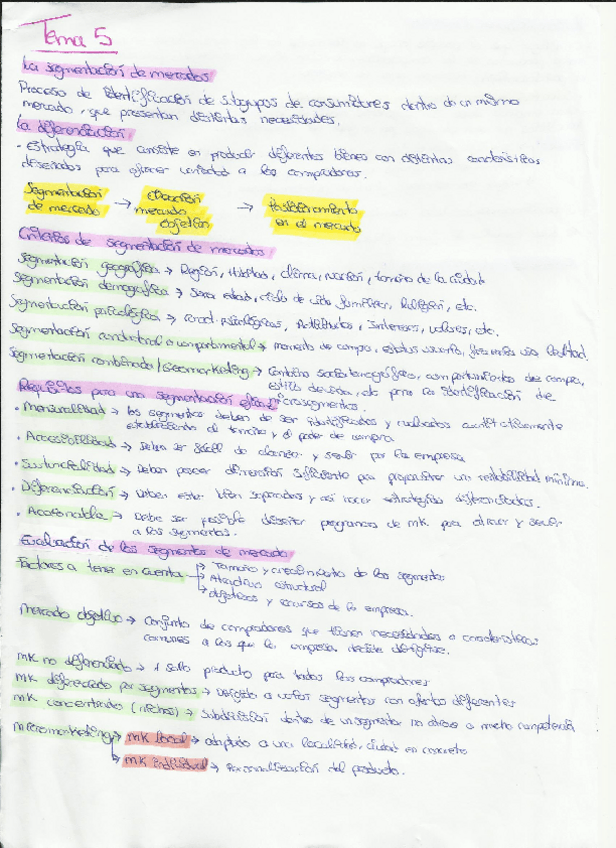 Tema 5
La segmentación de mercados
Proceso de identificación de subgrupos de consumidores dentro de un mismo
mercado, que presentan distintas necesidades.
La diferenciación:
- Estrategia que consiste en producir diferentes bienes con distintas características
diseñados para ofrecer variedad a los compradores.
Segmentación de mercado → elección mercado objetivo → Posicionamiento en el mercado
Criterios de segmentación de mercados
Segmentación geográfica → Región, Hábitat, clima, nación, tamaño de la ciudad
Segmentación demográfica → Sexo, edad, ciclo de vida familiar, Religión, etc.
Segmentación psicológica → caract. psicológicas, Actitudes, Intereses, valores, etc.
Segmentación conductual o comportamental → momento de compra, estatus usuario, lealtad.
Segmentación combinada / Geomarketing → Combina comportamientos de compra,
estilo de vida, etc para la identificación de
microsegmentos.
Requisitos para una segmentación eficaz
• Mensurabilidad → los segmentos deben de ser identificados y cuantitativamente
estableciendo el tamaño y el poder de compra
• Accesibilidad → Deben ser fácil de alcanzar y servir por la empresa
• Sustancialidad → Deben poseer dimensión suficiente para proporcionar una rentabilidad mínima.
• Diferenciación → Deben estar bien separados y así hacer estrategias diferenciadas.
• Accionable → Debe ser posible diseñar programas de mk para atraer y servir
a los segmentos.
Evaluación de los segmentos de mercado
Factores a tener en cuenta → Tamaño y crecimiento de los segmentos
→ Atractivo estructural
→ objetivos y recursos de la empresa.
Mercado objetivo → Conjunto de compradores que tienen necesidades o características
comunes a los que la empresa decide dirigirse.
MK no diferenciado → 1 solo producto para todos los compradores
MK diferenciado por segmentos → Dirigido a varios segmentos con ofertas diferentes
MK concentrado (nichos) → Subdivisión dentro de un segmento no atrae a mucha competencia
Micromarketing → MK local → adaptado a una localidad, ciudad en concreto
→ MK individual → Personalización del producto.